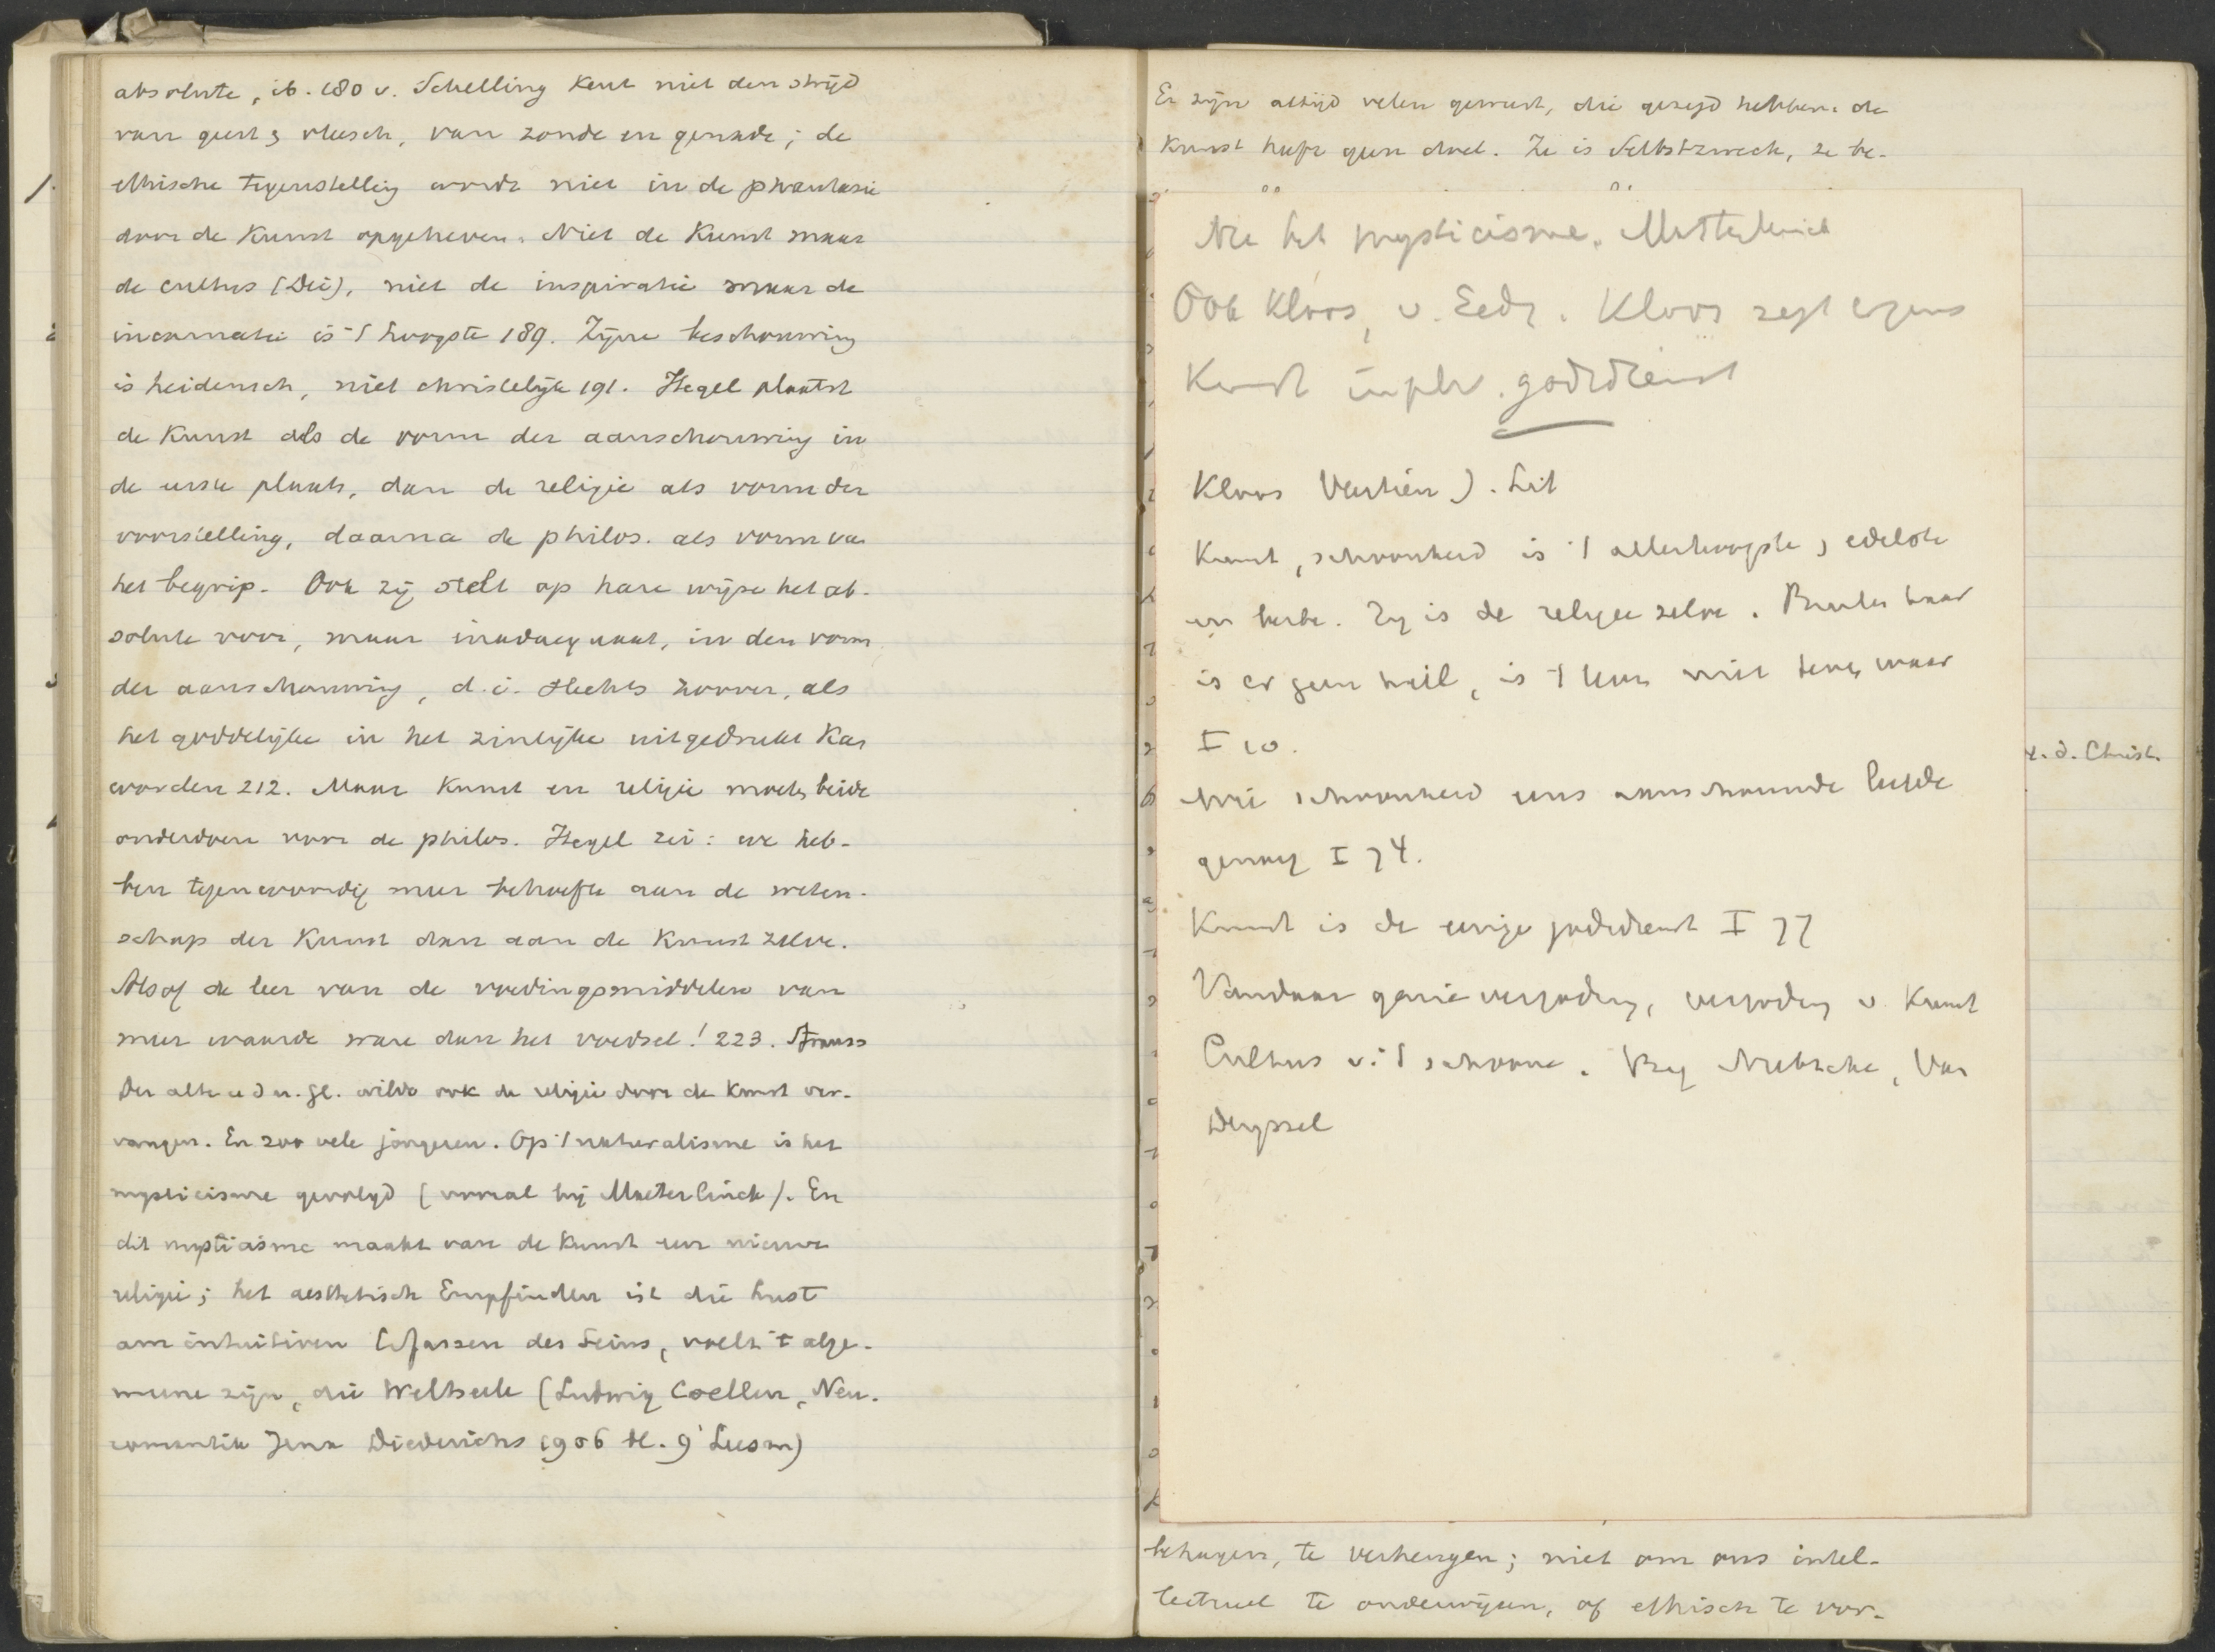 absolute, ib. 180 v. Schelling kent niet den strijd
van geest & vleesch, van zonde en genade; de
ethische tegenstelling wordt niet in de phantasie
door de Kunst opgeheven. Niet de Kunst maar
de cultus (Dei), niet de inspiratie maar de
incarnatie is 't hoogste 189. Zijne beschouwing
is heidensch, niet christelijk 191. Hegel plaatst
de Kunst als de vorm der aanschouwing in
de eerste plaats, dan de religie als vorm der
voorstelling, daarna de philos. als vorm van
het begrip. Ook zij stelt op hare wijze het ab-
solute voor, maar inadaequaat, in den vorm
der aanschouwing, d.i. slechts zoover, als
het goddelijke in het zinlijke uitgedrukt kan
worden 212. Maar Kunst en religie moeten beide
onderdoen voor de philos. Hegel zei: we heb-
ben tegenwoordig meer behoefte aan de weten-
schap der Kunst dan aan de Kunst zelve.
Alsof de leer van de voedingsmiddelen van
meer waarde ware dan het voedsel! 223. Strauss
Der alte u d n. Gl. wilde ook de religie door de Kunst ver-
vangen. En zoo vele jongeren. Op 't naturalisme is het
mysticisme gevolgd (vooral bij Maeterlinck). En
dit mysticisme maakt van de Kunst een nieuwe
religie; het aesthetisch Empfinden ist die Lust
am intuitiven Erfassen des Seins, voelt 't alge-
meene zijn, die Weltseele (Ludwig Coellen, Neu-
romantik Jena Diederichs 1906 bl. 9 Leesm)
Er zijn altijd velen geweest, die gezegd hebben: de
Kunst heeft geen doel. Ze is Selbstzweck, ze be-
Nu het mysticisme. Maeterlinck
Ook Kloos, v. Eed. Kloos zegt ergens
Kunst godsdienst
Kloos Veertien J. Lit
Kunst, schoonheid is 't allerhoogste, edelste
en beste. Zij is de religie zelve. Buiten haar
is er geen heil, is 't leven niet waar
I 10.
Wie schoonheid eens aanschouwde leefde
genoeg I 74.
Kunst is de eenige godsdienst I 77
Vandaar genievergoding, vergoding v. Kunst
Cultus v. 't schoone. Bij Nietzsche, Van
Deyssel
v. d. Christ.
behagen, te verheugen; niet om ons intel-
lectueel te onderwijzen, of ethisch te vor-